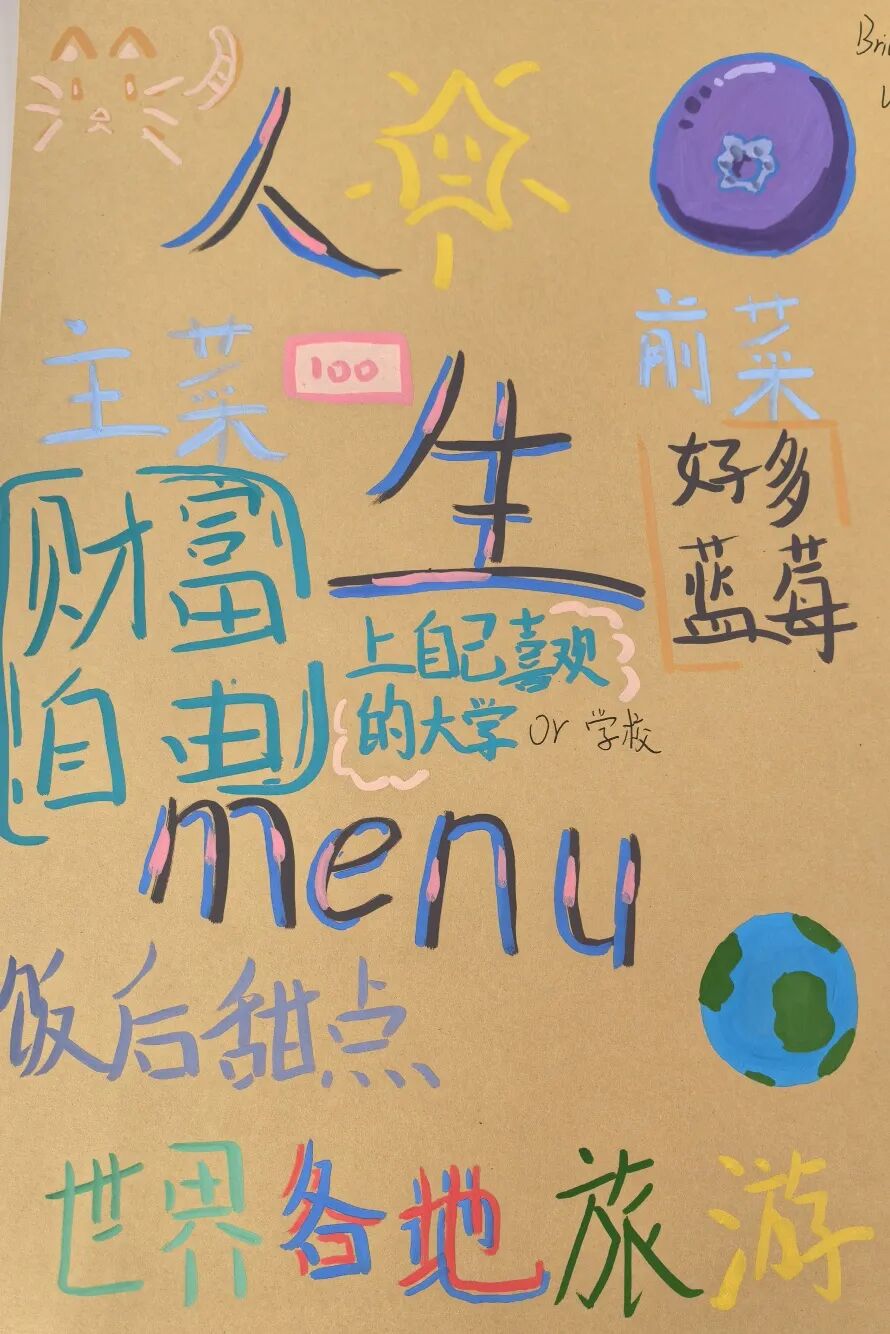 人
生
menu
前菜
好多
蓝莓
主菜
100
财富
自由
上自己喜欢
的大学 or 学校
饭后甜点
世界各地旅游